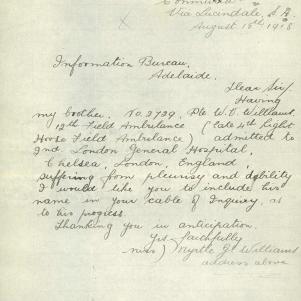 Via Lucindale, S.A.
August 15th 1918
Information Bureau,
Adelaide.
Dear Sir/
Having
my brother. No. 2729. Pte W. O. Williams
12th Field Ambulance (late 4th Light
Horse Field Ambulance) admitted to
2nd London General Hospital,
Chelsea, London, England,
suffering from pleurisy and debility
I would like you to include his
name in your cable of Inquiry, as
to his progress.
Thanking you in anticipation.
Yrs faithfully
(Miss) Myrtle J. Williams
address above